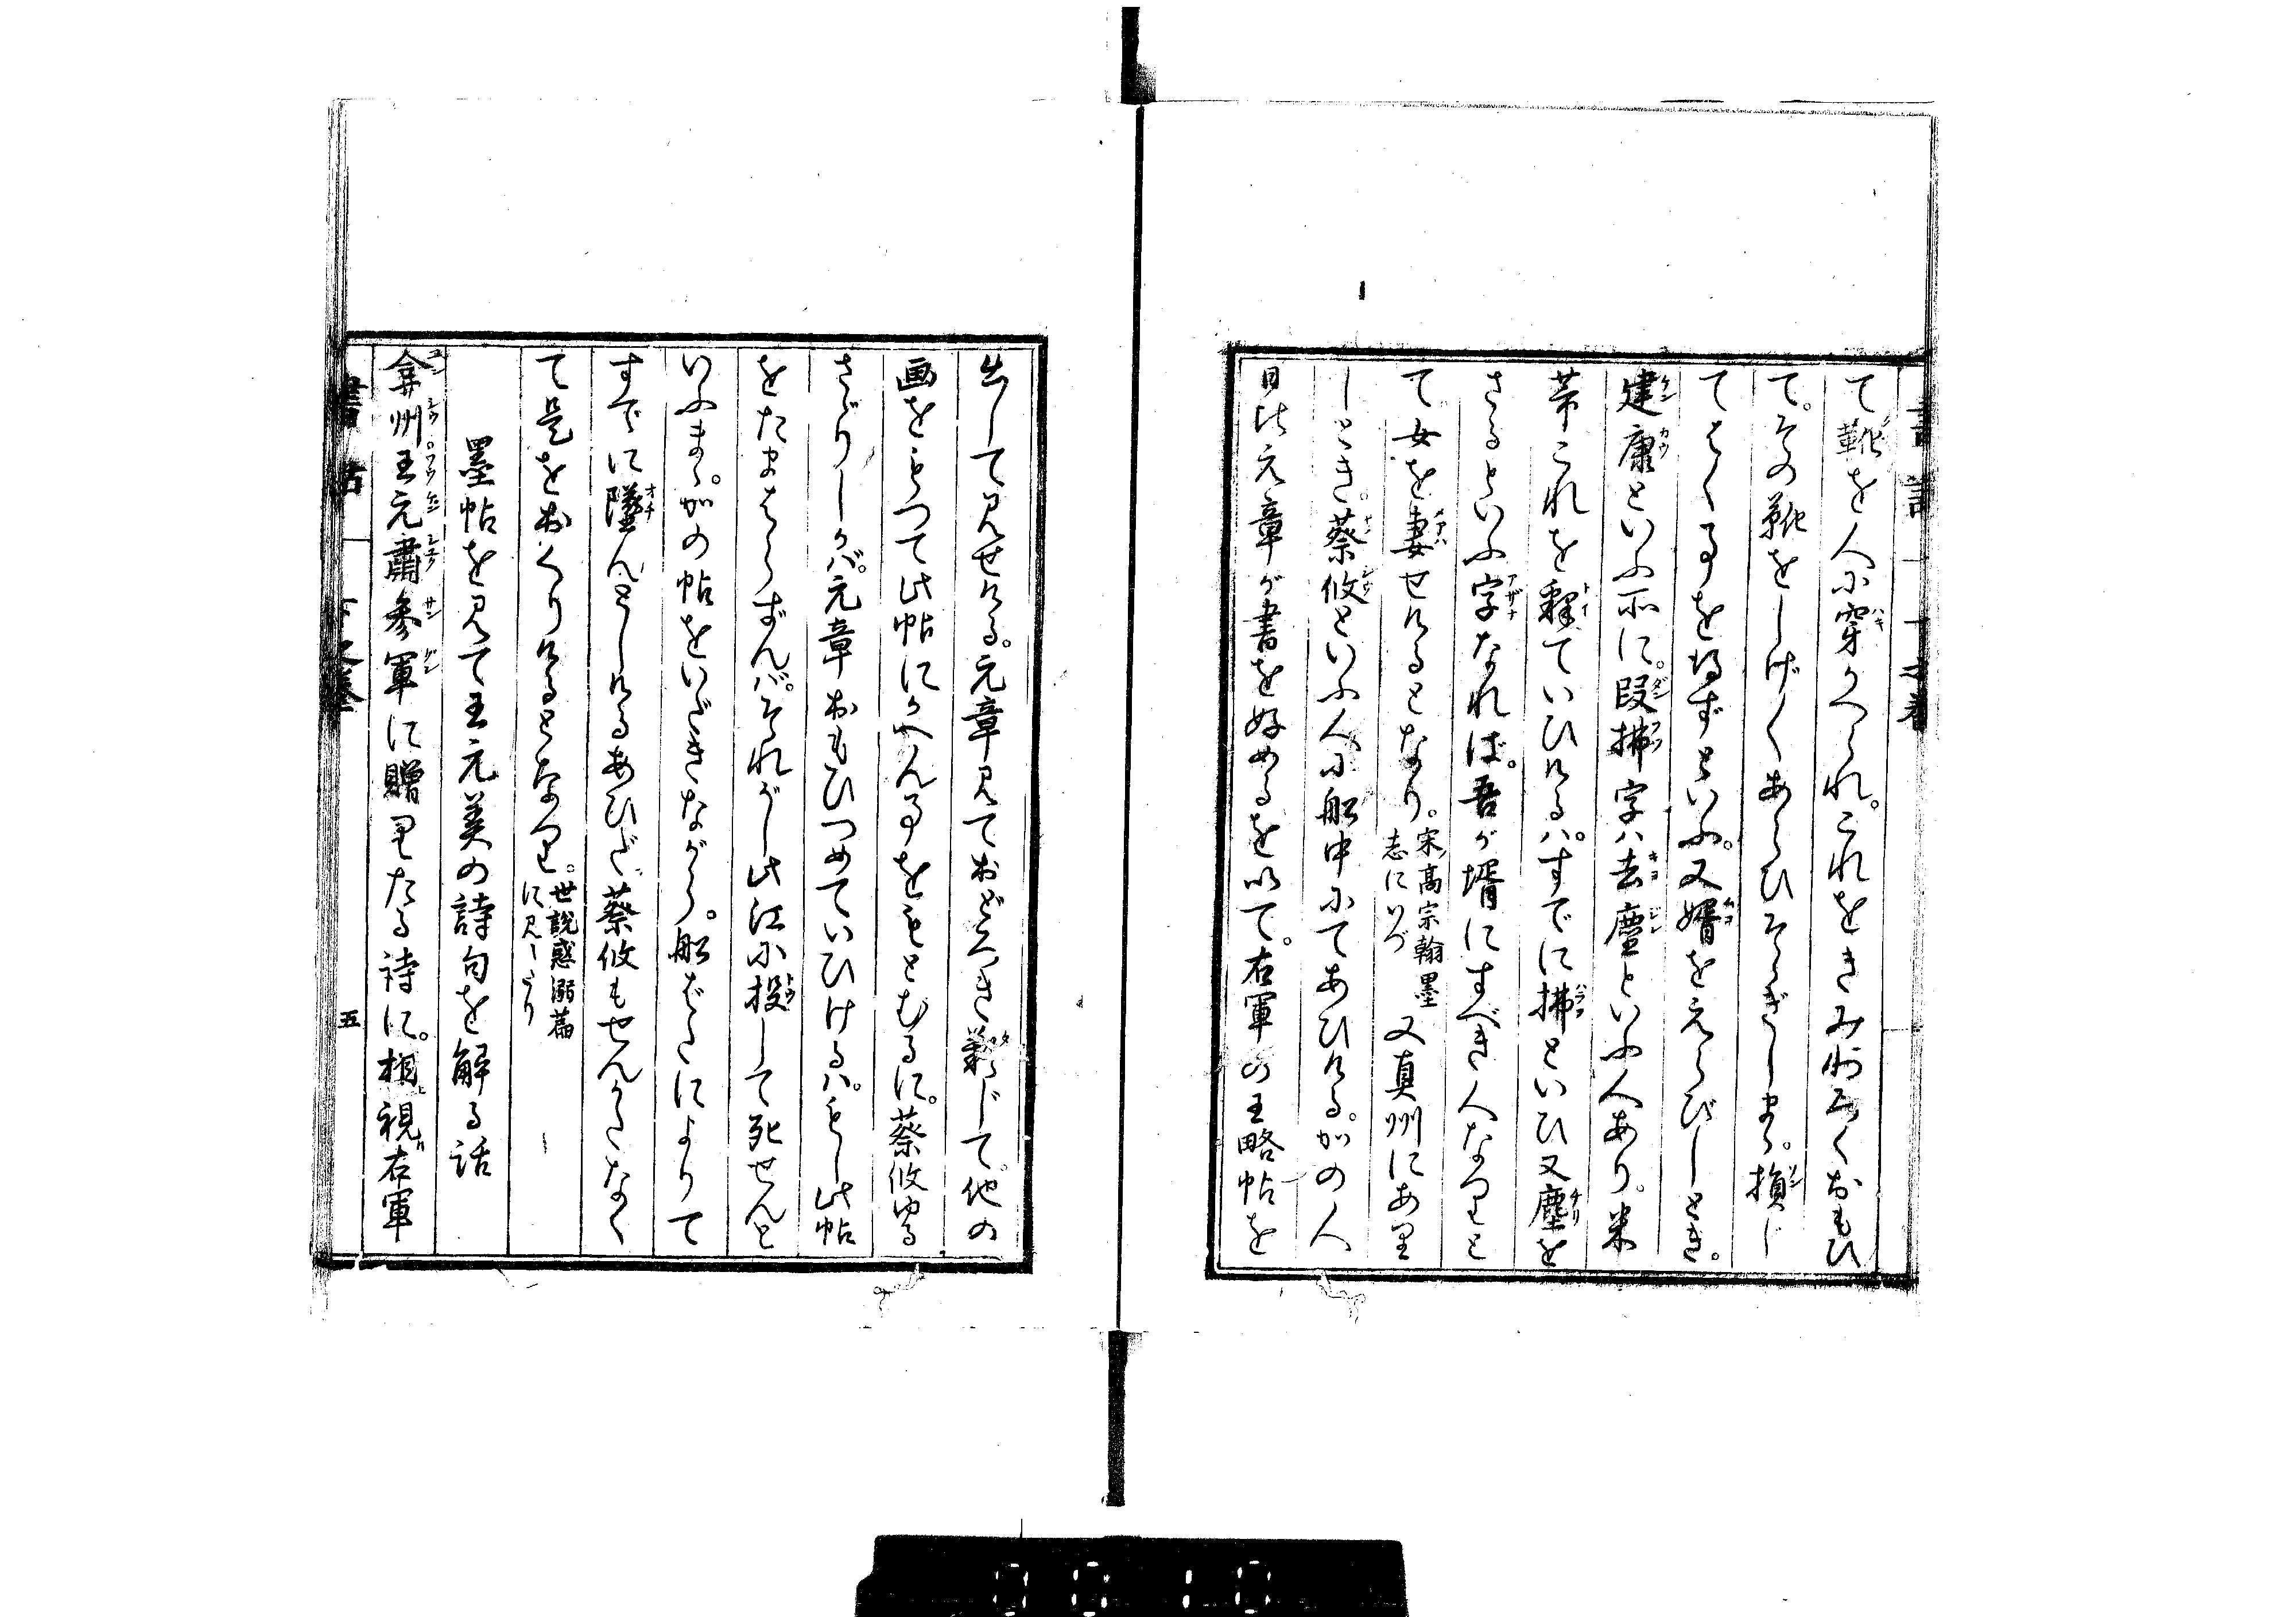 て靴を人に穿かへられ。これをきみわろくおもひ
て。その靴をしげくあらひそゝぎしまゝ。損じ
てはく事を得ずといふ。又婿をえらびしとき。
建康といふ所に。段拂字ハ去塵といふ人あり。米
芾これを釋ていひけるハ。すでに拂といひ又塵を
さるといふ字なれば。吾が壻にすべき人なりと
て。女を妻せけるとなり。宋ノ高宗翰墨志にいづ 又真州にあり
しとき。蔡攸といふ人に船中にてあひける。かの人
日比元章が書を好めるを以て。右軍の王略帖を
出して見せける。元章見ておどろき歎じて。他の
画をもつて此帖にかへん事をもとむるに。蔡攸ゆる
さゞりしかバ。元章おもひつめていひけるハ。もし此帖
をたまはらずんバ。それがし此江に投して死せんと
いふまゝ。かの帖をいだきながら。船ばたによりて
すでに墜んとしけるあひだ。蔡攸もせんかたなく
て是をおくりけるとなり。世說惑溺篇に見へたり
墨帖を見て王元美の詩句を解る話
弇州王元肅參軍に贈りたる詩に。相視右軍
五